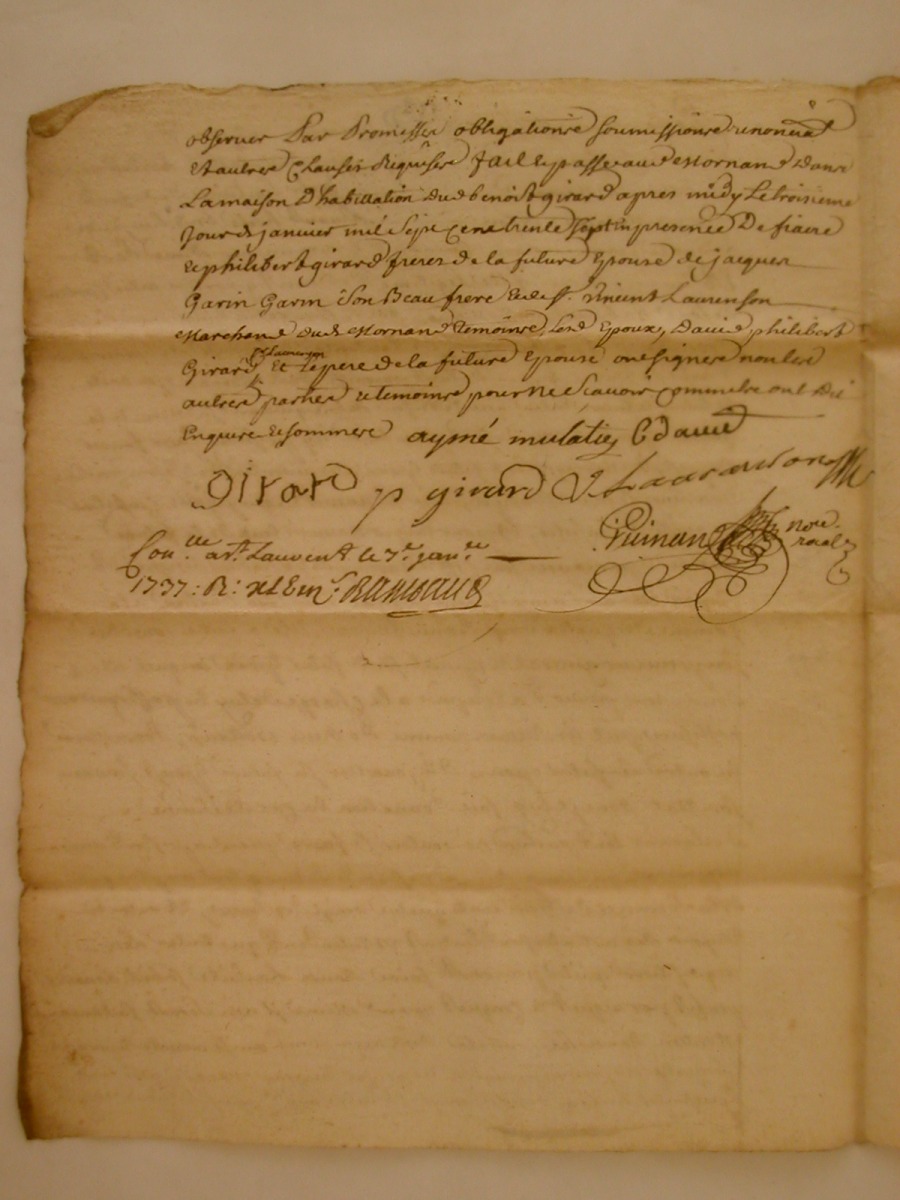 observer Par Promisses obligations soumissions renonciãt
Et autres Clauses Requises fait & passé aud Mornand Dans
La maison D'habittation dud benoist girard apres midy Le troisieme
Jour de janvier mil sept cens trente sept in presence De
& philibert girard freres de la future Epouse de jacques
Garin Garin son Beau frere & de Sr. Vincent Laurenson
Marchand dud Mornand temoins, led Epoux, David philibert
Sr Laurenson
Girard, Et le pere de la future Epouse ont signes non les
autres parties & temoins pour ne scavoir comme ils ont dit
Enquis & sommes aymé mulaties C david
Girard p girard V Laurenson
not. royal
Con.lle a St. Laurent le 7e janv.re
1737: R: